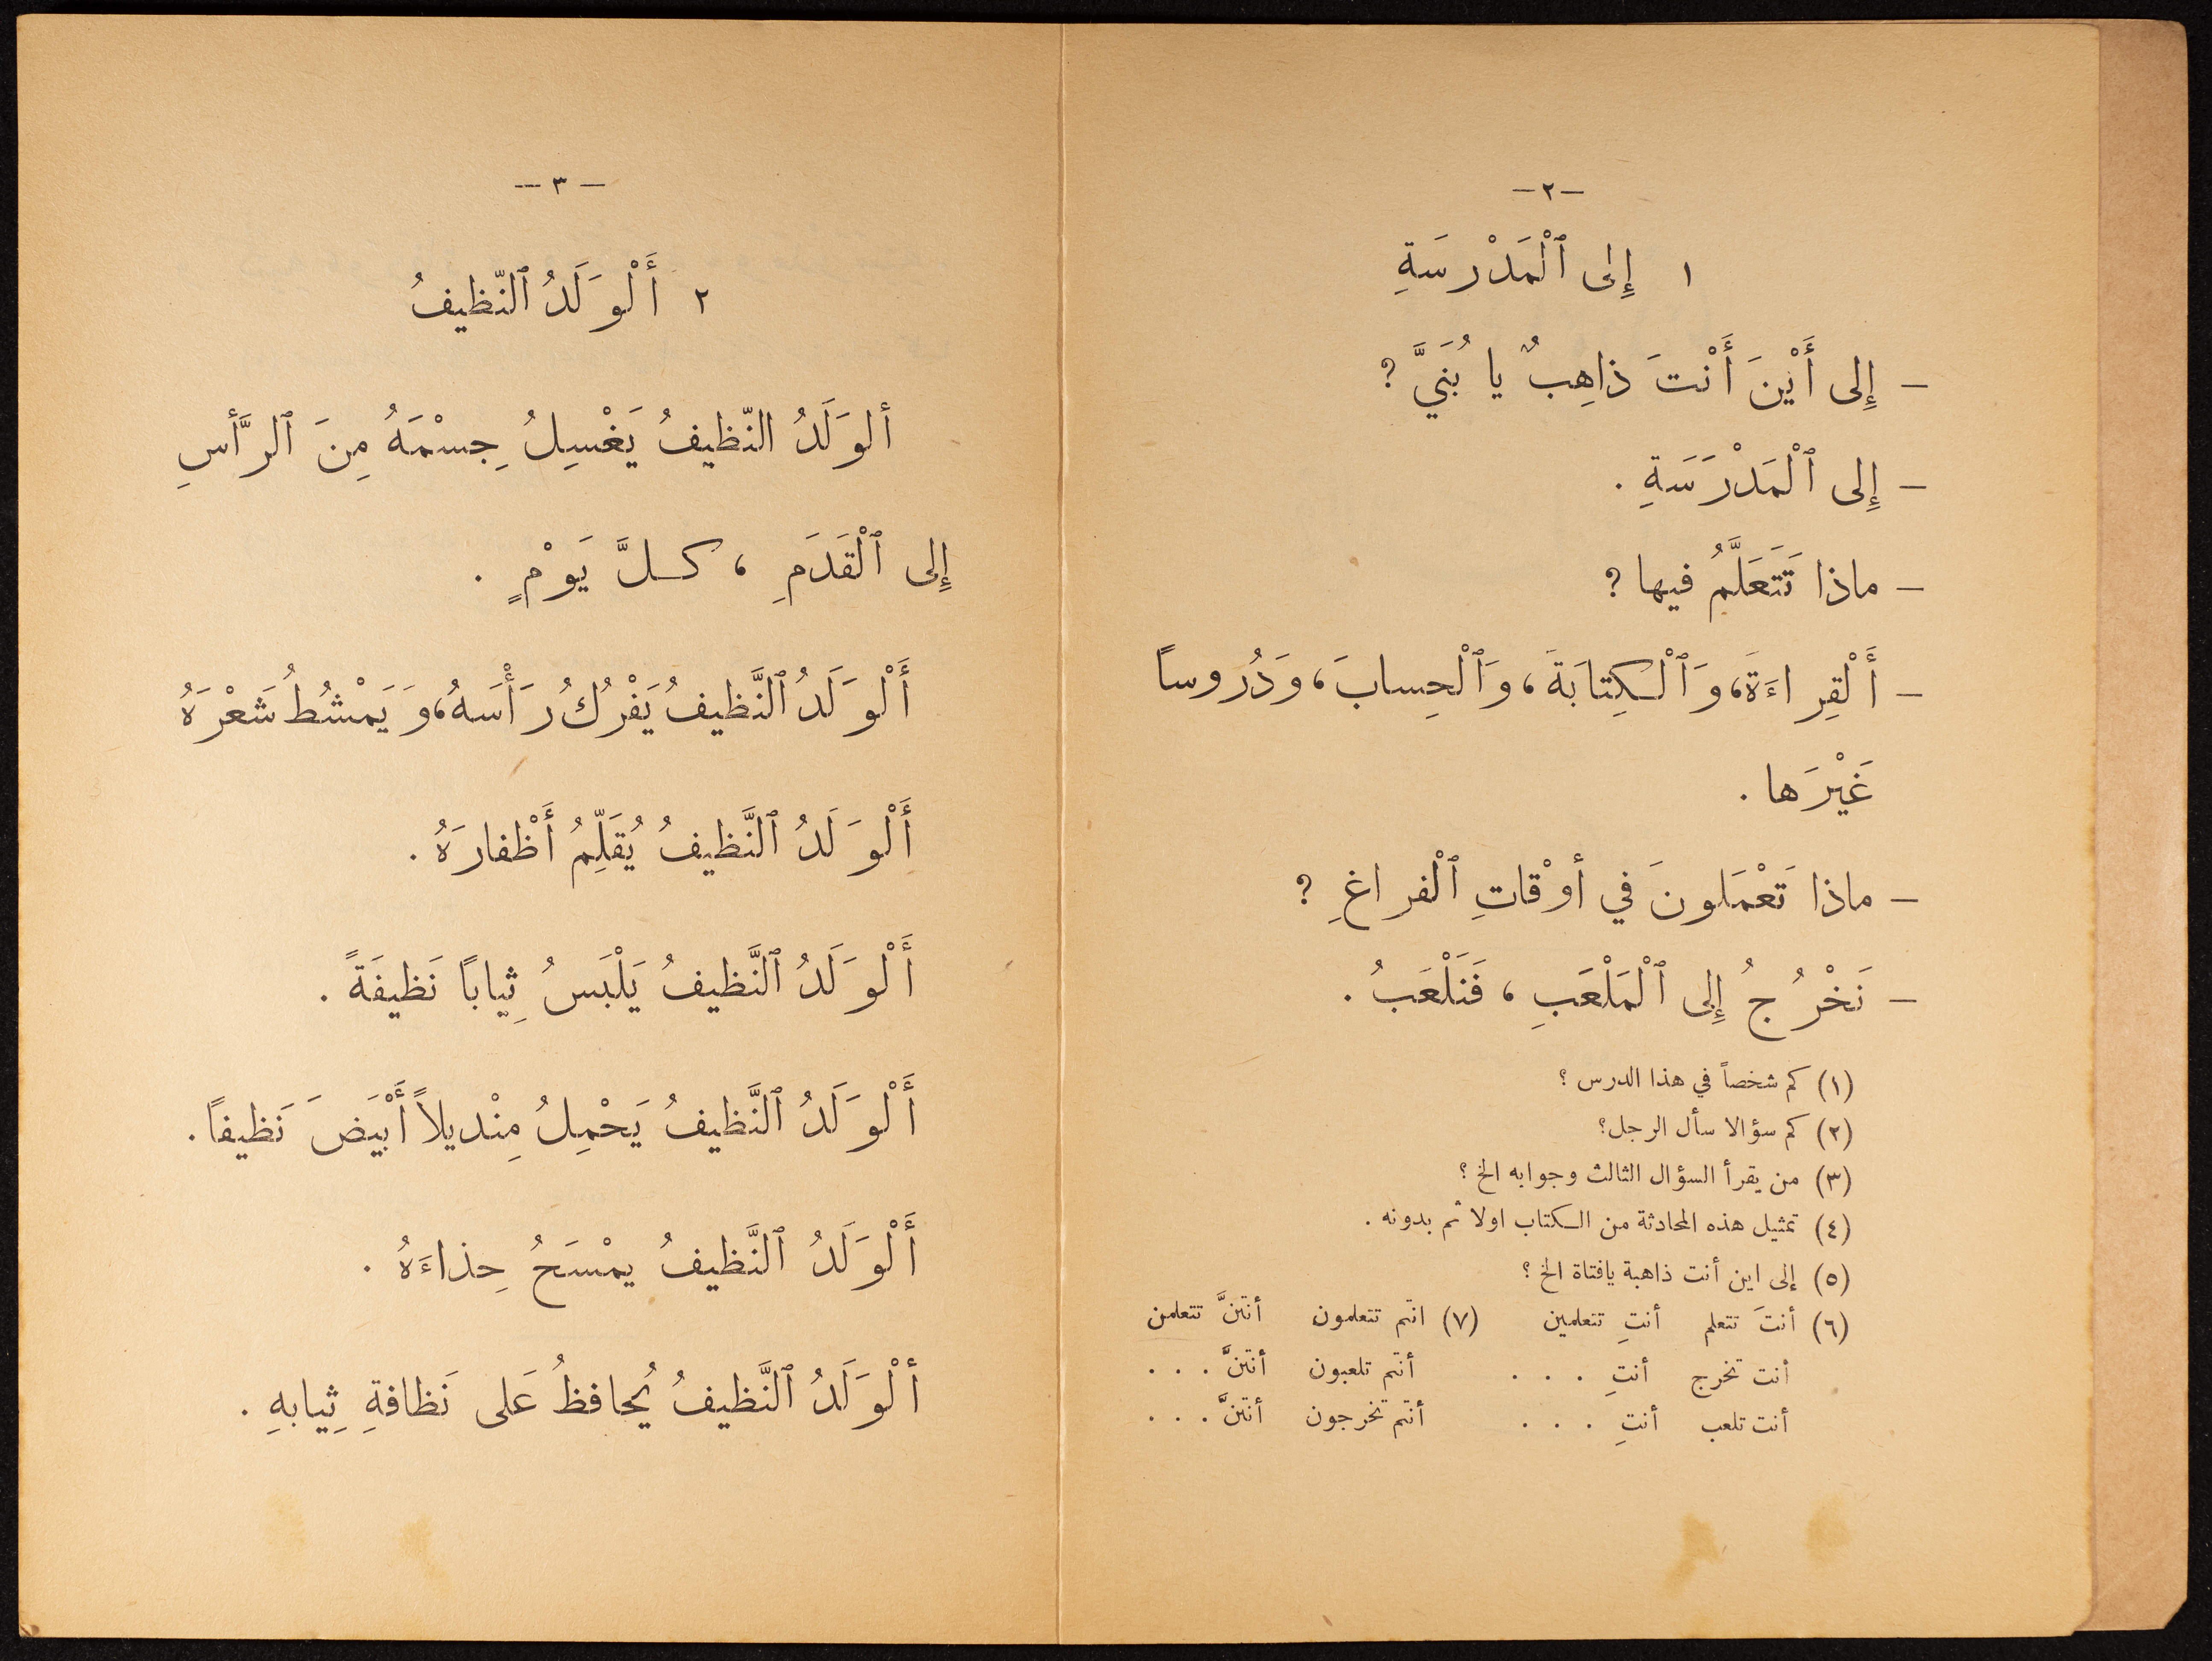 — ٢ —
١ إِلى ٱلْمَدْرَسَةِ
— إِلى أَيْنَ أَنْتَ ذاهِبٌ يا بُنَيَّ ?
— إِلى ٱلْمَدْرَسَةِ .
— ماذا تَتَعَلَّمُ فيها ?
— أَلْقِراءَةَ، وَٱلْكِتابَةَ، وَٱلْحِسابَ، وَدُروساً
غَيْرَها .
— ماذا تَعْمَلونَ في أوْقاتِ ٱلْفراغِ ?
— نَخْرُجُ إِلى ٱلْمَلْعَبِ ، فَنَلْعَبُ .
(١) كم شخصاً في هذا الدرس ؟
(٢) كم سؤالا سأل الرجل؟
(٣) من يقرأ السؤال الثالث وجوابه الخ ؟
(٤) تمثيل هذه المحادثة من الكتاب اولا ثم بدونه .
(٥) إلى اين أنت ذاهبة يافتاة الخ ؟
(٦) أنتَ تتعلم أنتِ تتعلمين (٧) انتم تتعلمون أنتنَّ تتعلمن
أنت تخرج أنتِ . . . أنتم تلعبون أنتنَّ . . .
أنت تلعب أنتِ . . . أنتم تخرجون أنتنَّ . . .
— ٣ —
٢ أَلْوَلَدُ ٱلنّظيفُ
ألوَلَدُ النّظيفُ يَغْسِلُ جِسْمَهُ مِنَ ٱلرَّأسِ
إِلى ٱلْقَدَمِ ، كلَّ يَوْمٍ .
أَلْوَلَدُ ٱلنَّظيفُ يَفْرُكُ رَأْسَهُ، وَيَمْشُطُ شَعْرَهُ
أَلْوَلَدُ ٱلنَّظيفُ يُقَلِّمُ أَظْفارَهُ .
أَلْوَلَدُ ٱلنَّظيفُ يَلْبَسُ ثِياباً نَظيفَةً .
أَلْوَلَدُ ٱلنَّظيفُ يَحْمِلُ مِنْديلاً أَبْيَضَ نَظيفاً .
أَلْوَلَدُ ٱلنَّظيفُ يمْسَحُ حِذاءَهُ .
ألْوَلَدُ ٱلنَّظيفُ يُحافظُ عَلى نَظافةِ ثِيابهِ .